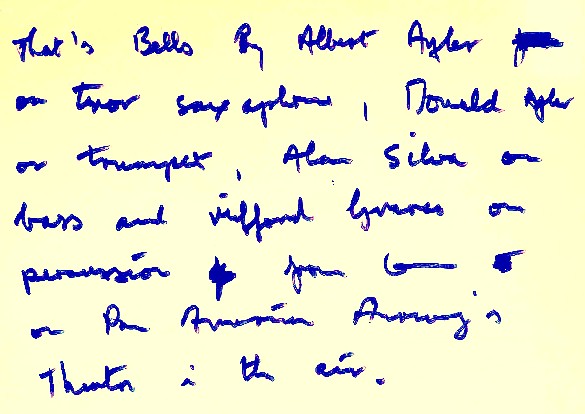 That's Bells By Albert Ayler
on tenor saxophone, Donald Ayler
on trumpet, Alan Silva on
bass and Milford Graves on
percussion from
on Pan American Airway's
Theater in the air.